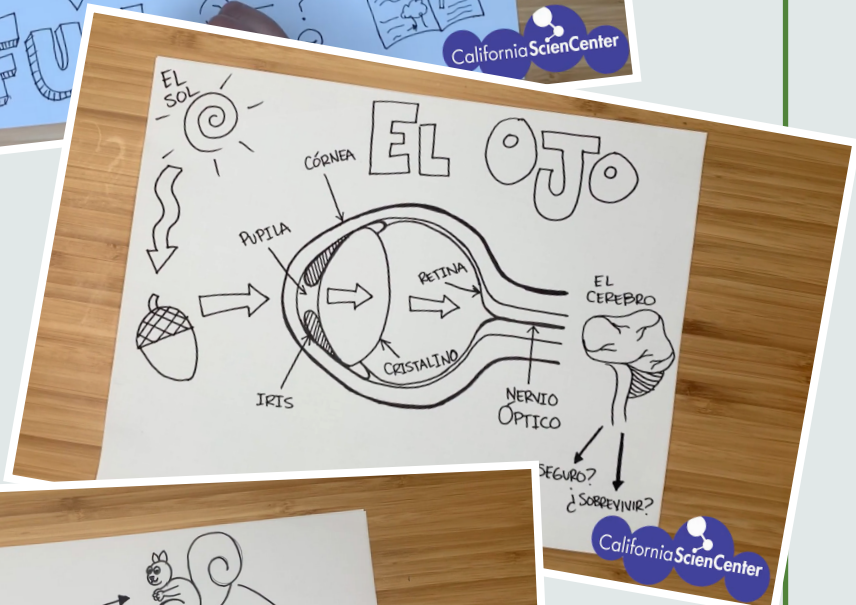 FU
California ScienCenter
EL
SOL
EL OJO
CÓRNEA
PUPILA
RETINA
EL
CEREBRO
CRISTALINO
IRIS
NERVIO
ÓPTICO
SEGURO?
¿SOBREVIVIR?
California ScienCenter